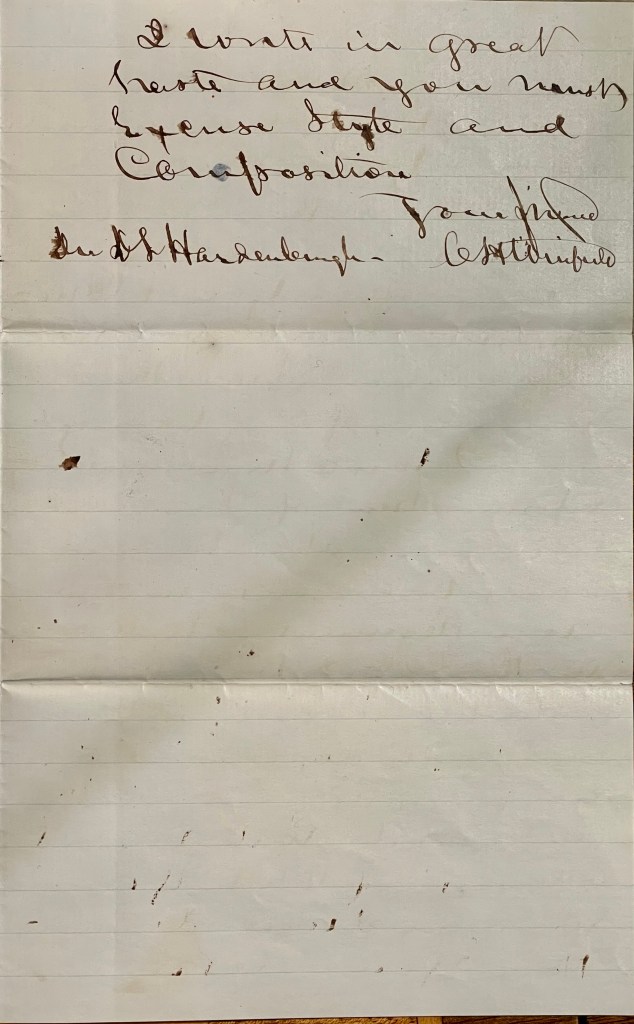 I wrote in great
haste and you must
Excuse Style and
Composition
Your friend
Dr D S Hardenburgh - C H Winfield